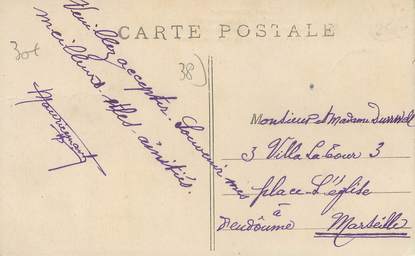 CARTE POSTALE
30f
38)
Veuillez accepter. Souvenir mes
meilleures amitiés.
Monsieur et Madame
3 Villa La Cour 3
place L'église
à
d'endoume Marseille